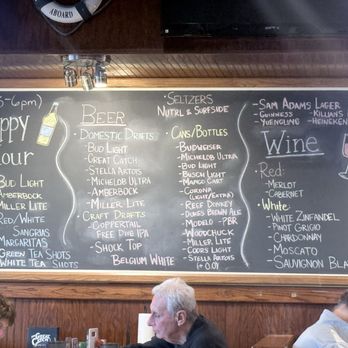 ABOARD
5-6pm)
ppy
our
Bud Light
Amberbock
Miller Lite
Red/White
Sangrias
Margaritas
Green Tea Shots
White Tea Shots
Beer
- Domestic Drafts -
- Bud Light
- Great Catch
- Stella Artois
- Michelob Ultra
- Amberbock
- Miller Lite
- Craft Drafts -
- Coppertail
Free Dive IPA
- Shock Top
Belgium White
- Seltzers
Nutrl & Surfside
- Cans/Bottles
- Budweiser
- Michelob Ultra
- Bud Light
- Busch Light
- Corona
(Light/Extra)
- Reef Donkey
- Dukes Brown Ale
- Modelo - PBR
- Woodchuck
- Miller Lite
- Coors Light
- Stella Artois
(+ 0.0)
- Sam Adams Lager
- Guinness - Killians
- Yuengling - Heineken
Wine
Red:
- Merlot
- Cabernet
White
- White Zinfandel
- Pinot Grigio
- Chardonnay
- Moscato
- Sauvignon Bla